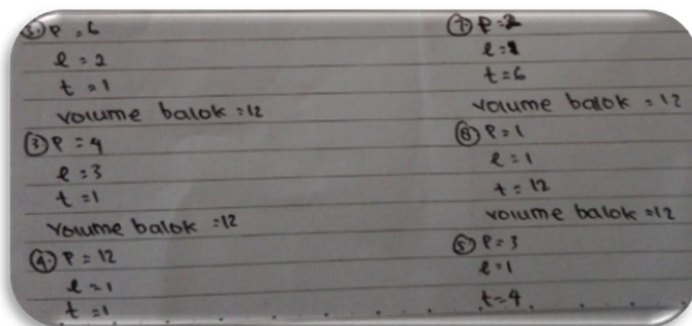 ② P = 6
l = 2
t = 1
volume balok = 12
③ P = 4
l = 3
t = 1
volume balok = 12
④ P = 12
l = 1
t = 1
⑦ P = 2
l = 1
t = 6
volume balok = 12
⑧ P = 1
l = 1
t = 12
volume balok = 12
⑤ P = 3
l = 1
t = 4